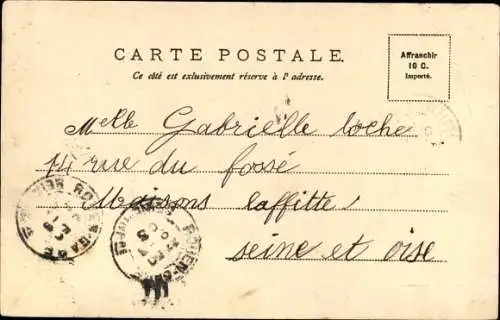 CARTE POSTALE.
Ce côté est exclusivement réservé à l'adresse.
Affranchir
10 C.
Importé.
Melle Gabrielle Loche
14 rue du fossé
Maisons laffitte
seine et oise
ROUEN-GARE
ROUEN-GARE